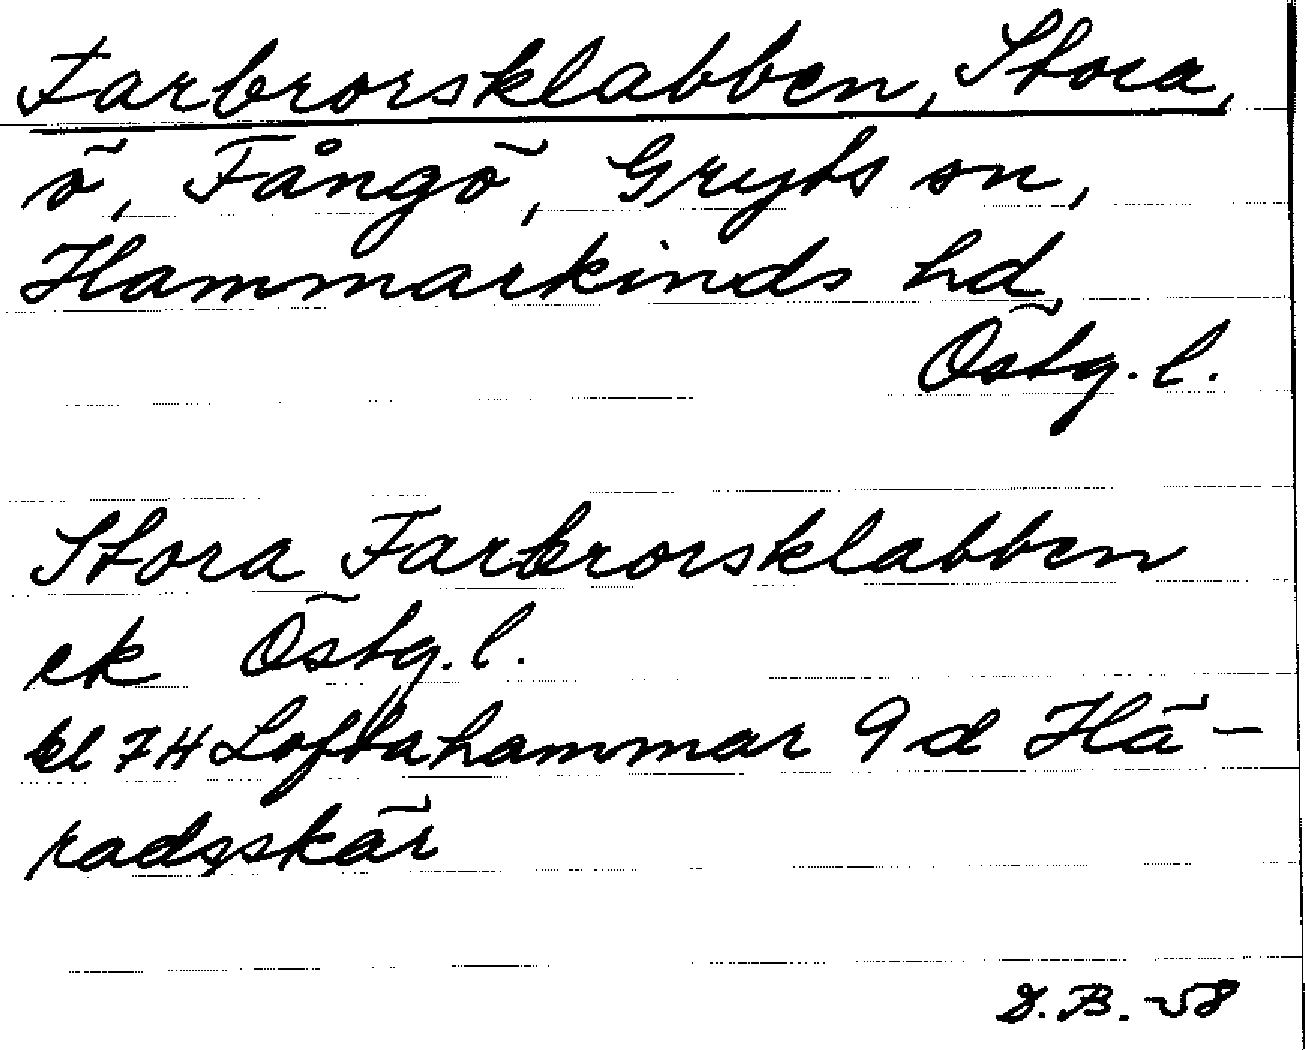 Farbrorsklabben, Stora,
ö, Fångö, Gryts sn,
Hammarkinds hd
Östg. l.
Stora Farbrorsklabben
ek Östg. l.
bl 7H Loftahammar 9 d Hä-
radsskär
D.B. -58